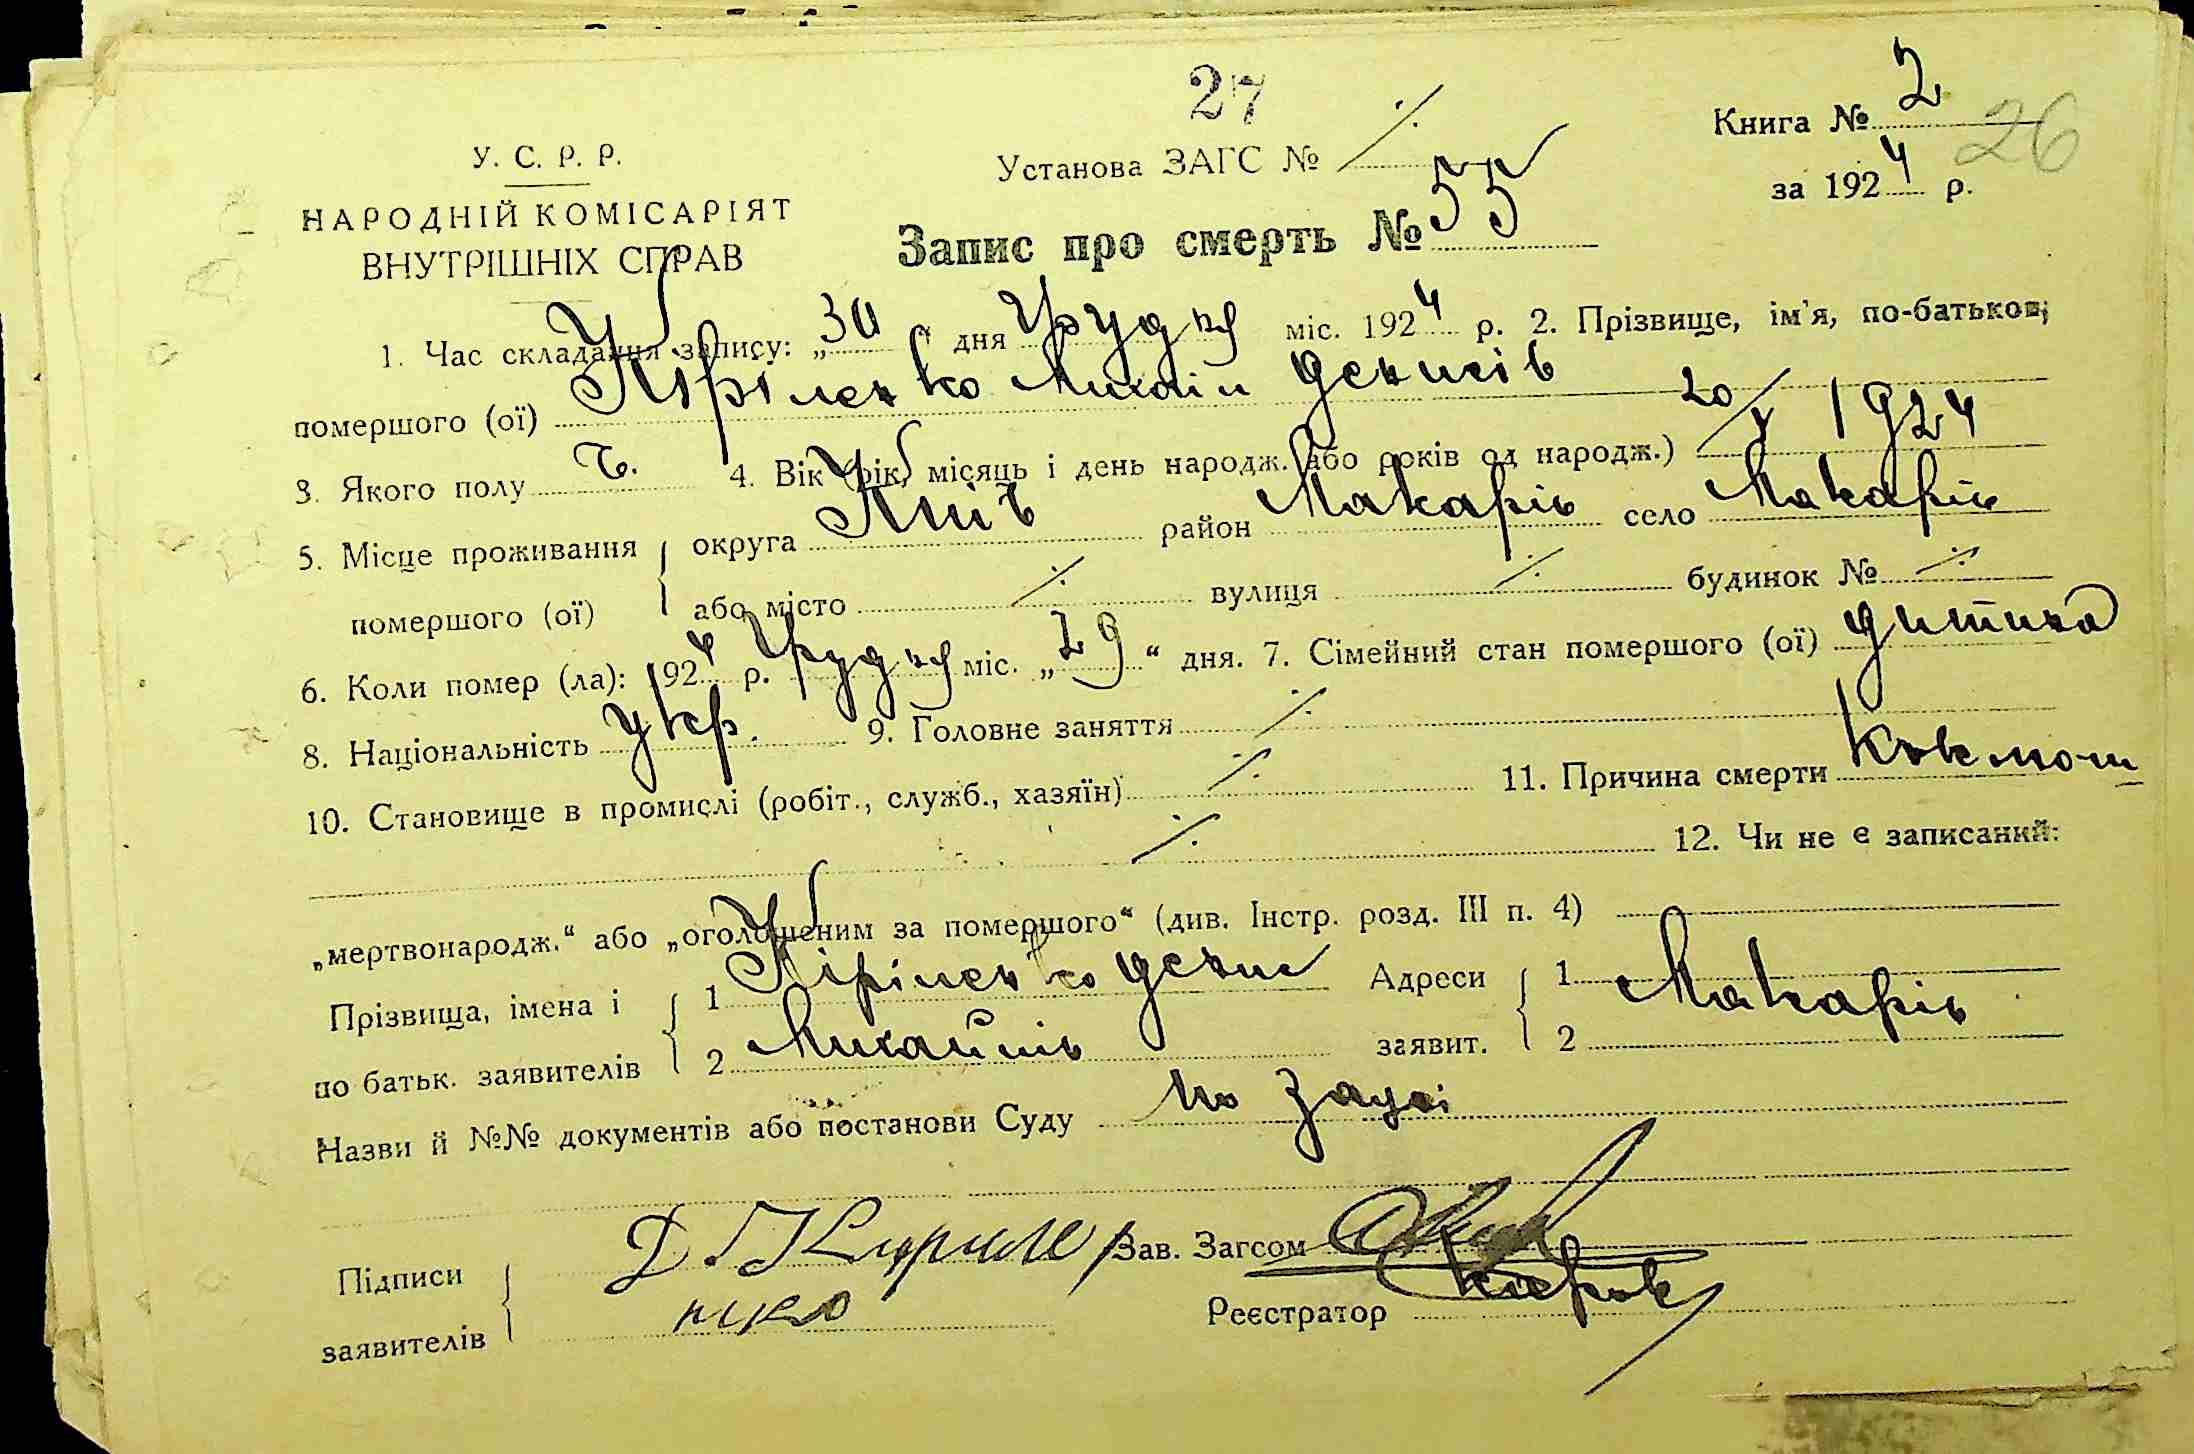 27
Книга № 2
26
У. С. Р. Р.
Установа ЗАГС № ⁒
за 1924 р.
НАРОДНІЙ КОМІСАРІЯТ
ВНУТРІШНІХ СПРАВ
Запис про смерть № 55
1. Час складання запису: „30“ дня Грудня міс. 1924 р. 2. Прізвище, ім'я, по-батькові
помершого (ої) Кіріленко Михайл Денисів
3. Якого полу ч. 4. Вік (рік, місяць і день народж. або років од народж.) 20/X 1924
5. Місце проживання округа Київ район Макарів село Макарів
помершого (ої) або місто ⁒ вулиця ⁒ будинок № ⁒
6. Коли помер (ла): 1924 р. Грудня міс. „29“ дня. 7. Сімейний стан помершого (ої) дитина
8. Національність укр. 9. Головне заняття ⁒
10. Становище в промислі (робіт., служб., хазяїн) ⁒ 11. Причина смерти
⁒ 12. Чи не є записаний:
„мертвонародж.“ або „оголошеним за помершого“ (див. Інстр. розд. III п. 4)
Прізвища, імена і 1 Кіріленко Денис Адреси 1 Макарів
по батьк. заявителів 2 Михайлів заявит. 2
Назви й №№ документів або постанови Суду по заяві
Підписи Д. Кириле Зав. Загсом
заявителів нко Реєстратор